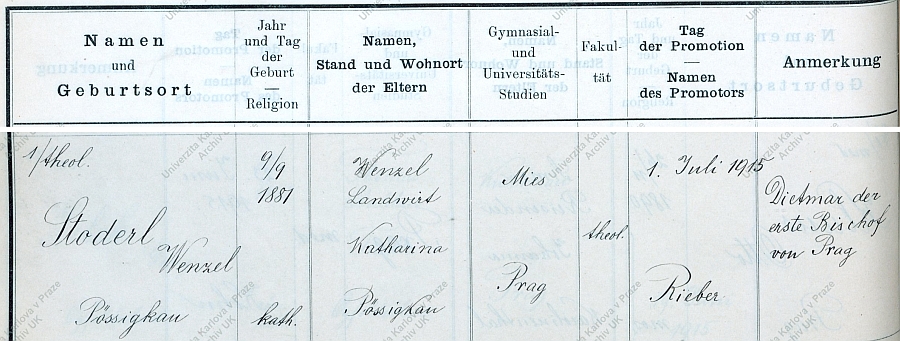 Namen
und
Geburtsort
Jahr
und Tag
der
Geburt
Religion
Namen,
Stand und Wohnort
der Eltern
Gymnasial-
und
Universitäts-
Studien
Fakul-
tät
Tag
der Promotion
Namen
des Promotors
Anmerkung
1/theol.
Stoderl
Wenzel
Pössigkau
9/9
1881
kath.
Wenzel
Landwirt
Katharina
Pössigkau
Mies
Prag
theol.
1. Juli 1915
Rieber
Dietmar der
erste Bischof
von Prag
Univerzita Karlova v Praze
Archiv UK